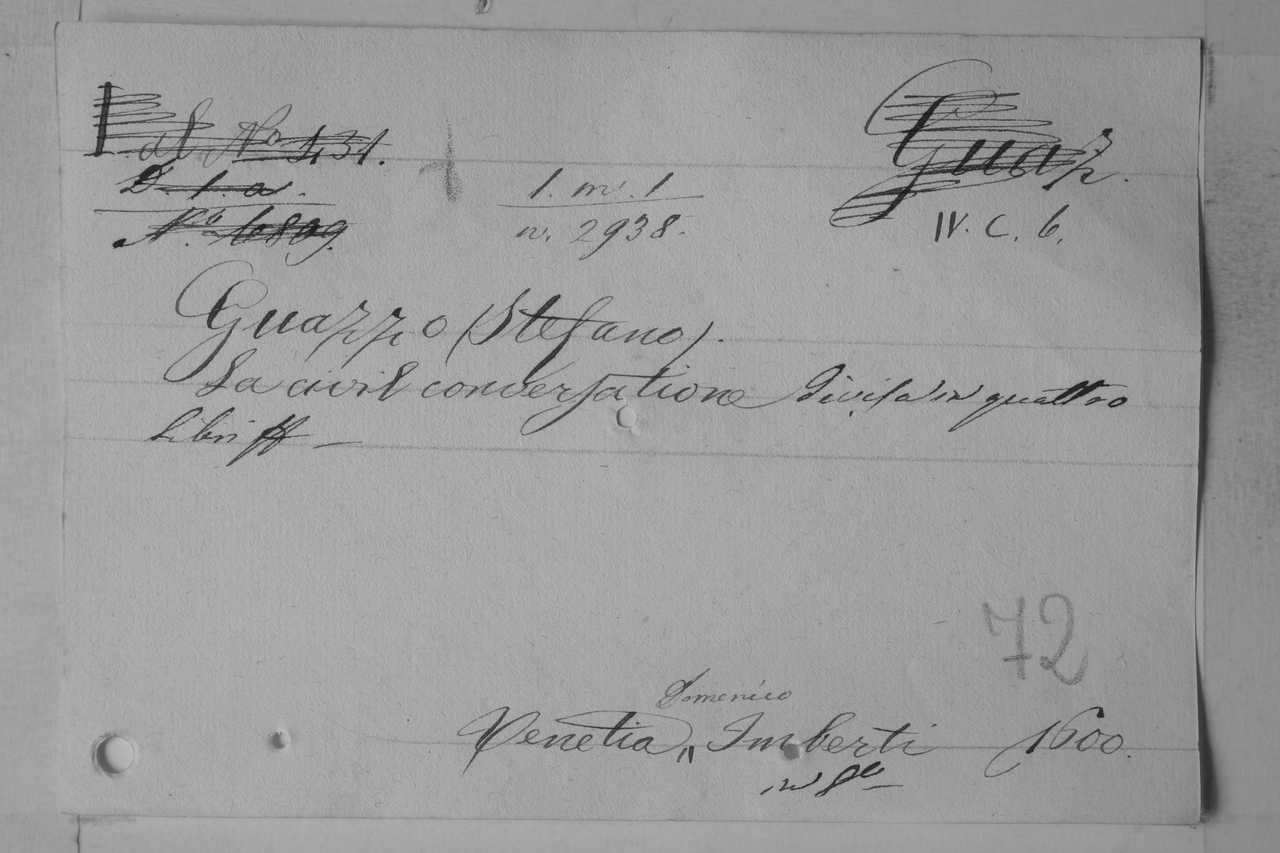 al. No 431.
D. 1. a.
No. 6809.
1. m. 1
n. 2938.
Guaz.
IV. C. 6.
Guazzo (Stefano).
La civil conversatione divisa in quattro
libri ff —
72
Domenico
Venetia, Imberti 1600.
in 8o —